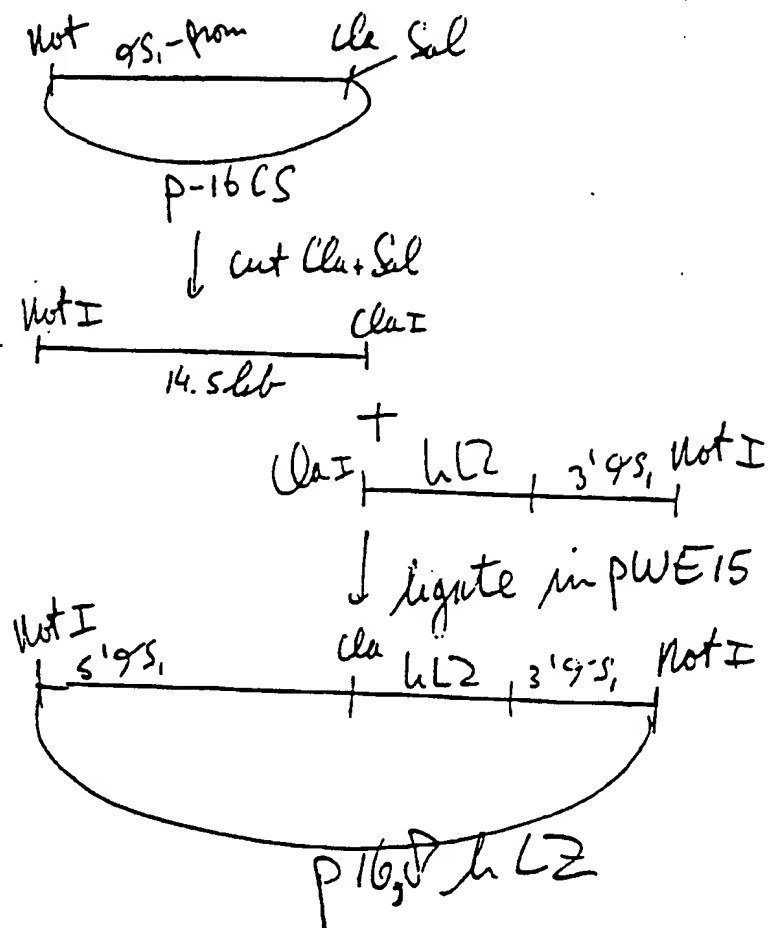 Not αS₁-prom Cla Sal
p-16CS
↓ cut Cla + Sal
Not I Cla I
14.5 kb
+
Cla I hLZ 3'αS₁ Not I
↓ ligate in pWE15
Not I 5'αS₁ Cla hLZ 3'αS₁ Not I
p16,8 hLZ